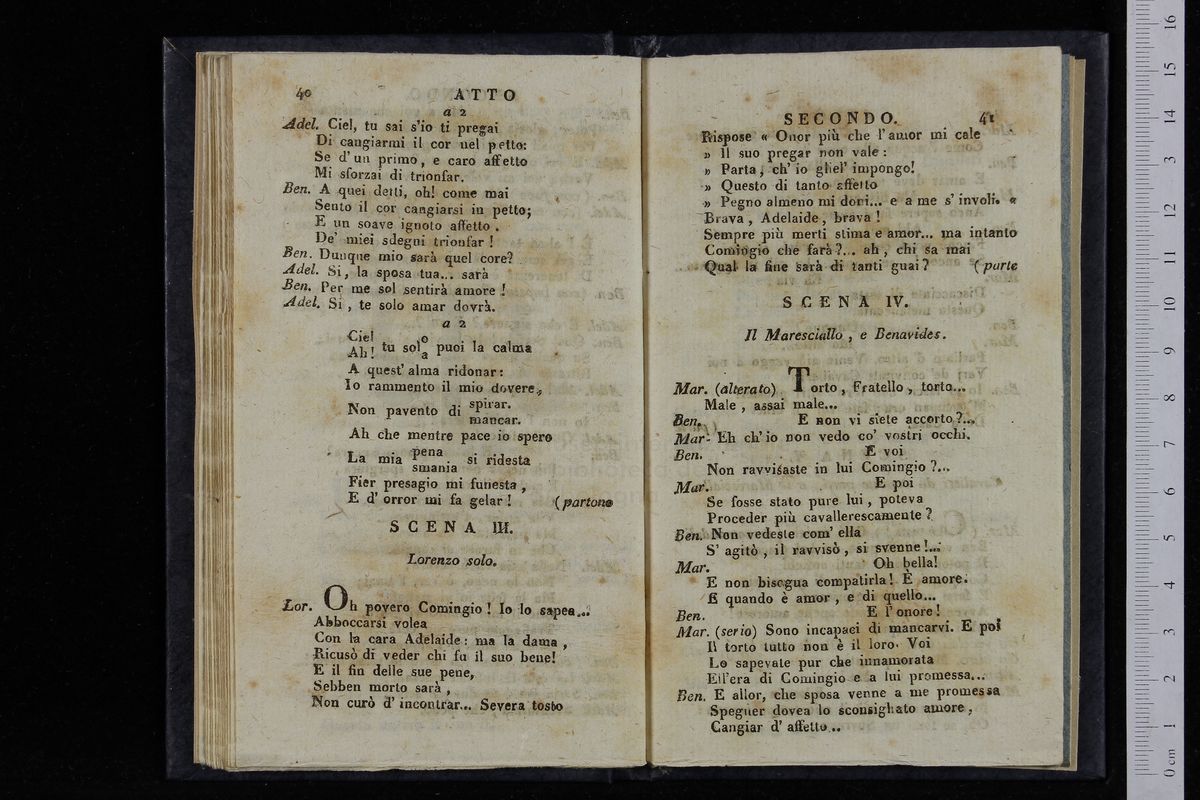 40 ATTO
a 2
Adel. Ciel, tu sai s'io ti pregai
Di cangiarmi il cor nel petto:
Se d'un primo, e caro affetto
Mi sforzai di trionfar.
Ben. A quei detti, oh! come mai
Sento il cor cangiarsi in petto;
E un soave ignoto affetto.
De' miei sdegni trionfar!
Ben. Dunque mio sarà quel core?
Adel. Si, la sposa tua... sarà
Ben. Per me sol sentirà amore!
Adel. Si, te solo amar dovrà.
a 2
Ciel
Ah! tu sol o
a puoi la calma
A quest' alma ridonar:
Io rammento il mio dovere,
Non pavento di spirar.
mancar.
Ah che mentre pace io spero
La mia pena
smania si ridesta
Fier presagio mi funesta,
E d' orror mi fa gelar! (partono
SCENA III.
Lorenzo solo.
Lor. Oh povero Comingio! Io lo sapea...
Abboccarsi volea
Con la cara Adelaide: ma la dama,
Ricusò di veder chi fu il suo bene!
E il fin delle sue pene,
Sebben morto sarà,
Non curò d' incontrar... Severa tosto
SECONDO. 41
Rispose « Onor più che l' amor mi cale
» Il suo pregar non vale:
» Parta, ch' io gliel' impongo!
» Questo di tanto affetto
» Pegno almeno mi dori... e a me s' involi. «
Brava, Adelaide, brava!
Sempre più merti stima e amor... ma intanto
Comingio che farà?... ah, chi sa mai
Qual la fine sarà di tanti guai? (parte
SCENA IV.
Il Maresciallo, e Benavides.
Mar. (alterato) Torto, Fratello, torto...
Male, assai male...
Ben. E non vi siete accorto?...
Mar. Eh ch' io non vedo co' vostri occhi.
Ben. E voi
Non ravvisaste in lui Comingio?...
Mar. E poi
Se fosse stato pure lui, poteva
Proceder più cavallerescamente?
Ben. Non vedeste com' ella
S' agitò, il ravvisò, si svenne!...
Mar. Oh bella!
E non bisogua compatirla! È amore.
E quando è amor, e di quello...
Ben. E l' onore!
Mar. (serio) Sono incapaci di mancarvi. E poi
Il torto tutto non è il loro. Voi
Lo sapevate pur che innamorata
Ell'era di Comingio e a lui promessa...
Ben. E allor, che sposa venne a me promessa
Spegner dovea lo sconsigliato amore,
Cangiar d' affetto...